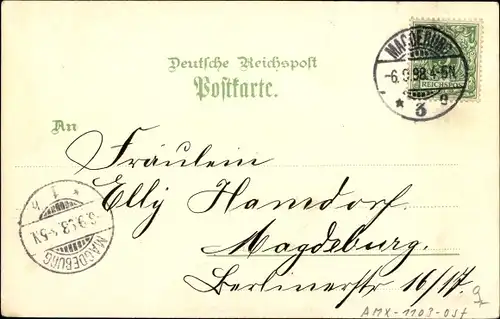 Deutsche Reichspost
Postkarte.
MAGDEBURG
-6.9.98.4-5N.
* 3 g.
REICHSPOST
An
Fräulein
Elly Hamdorf.
Magdeburg.
Berlinerstr 16/17.
* 1 h
6.9.98.4-5N.
MAGDEBURG
AMX-1103-03f